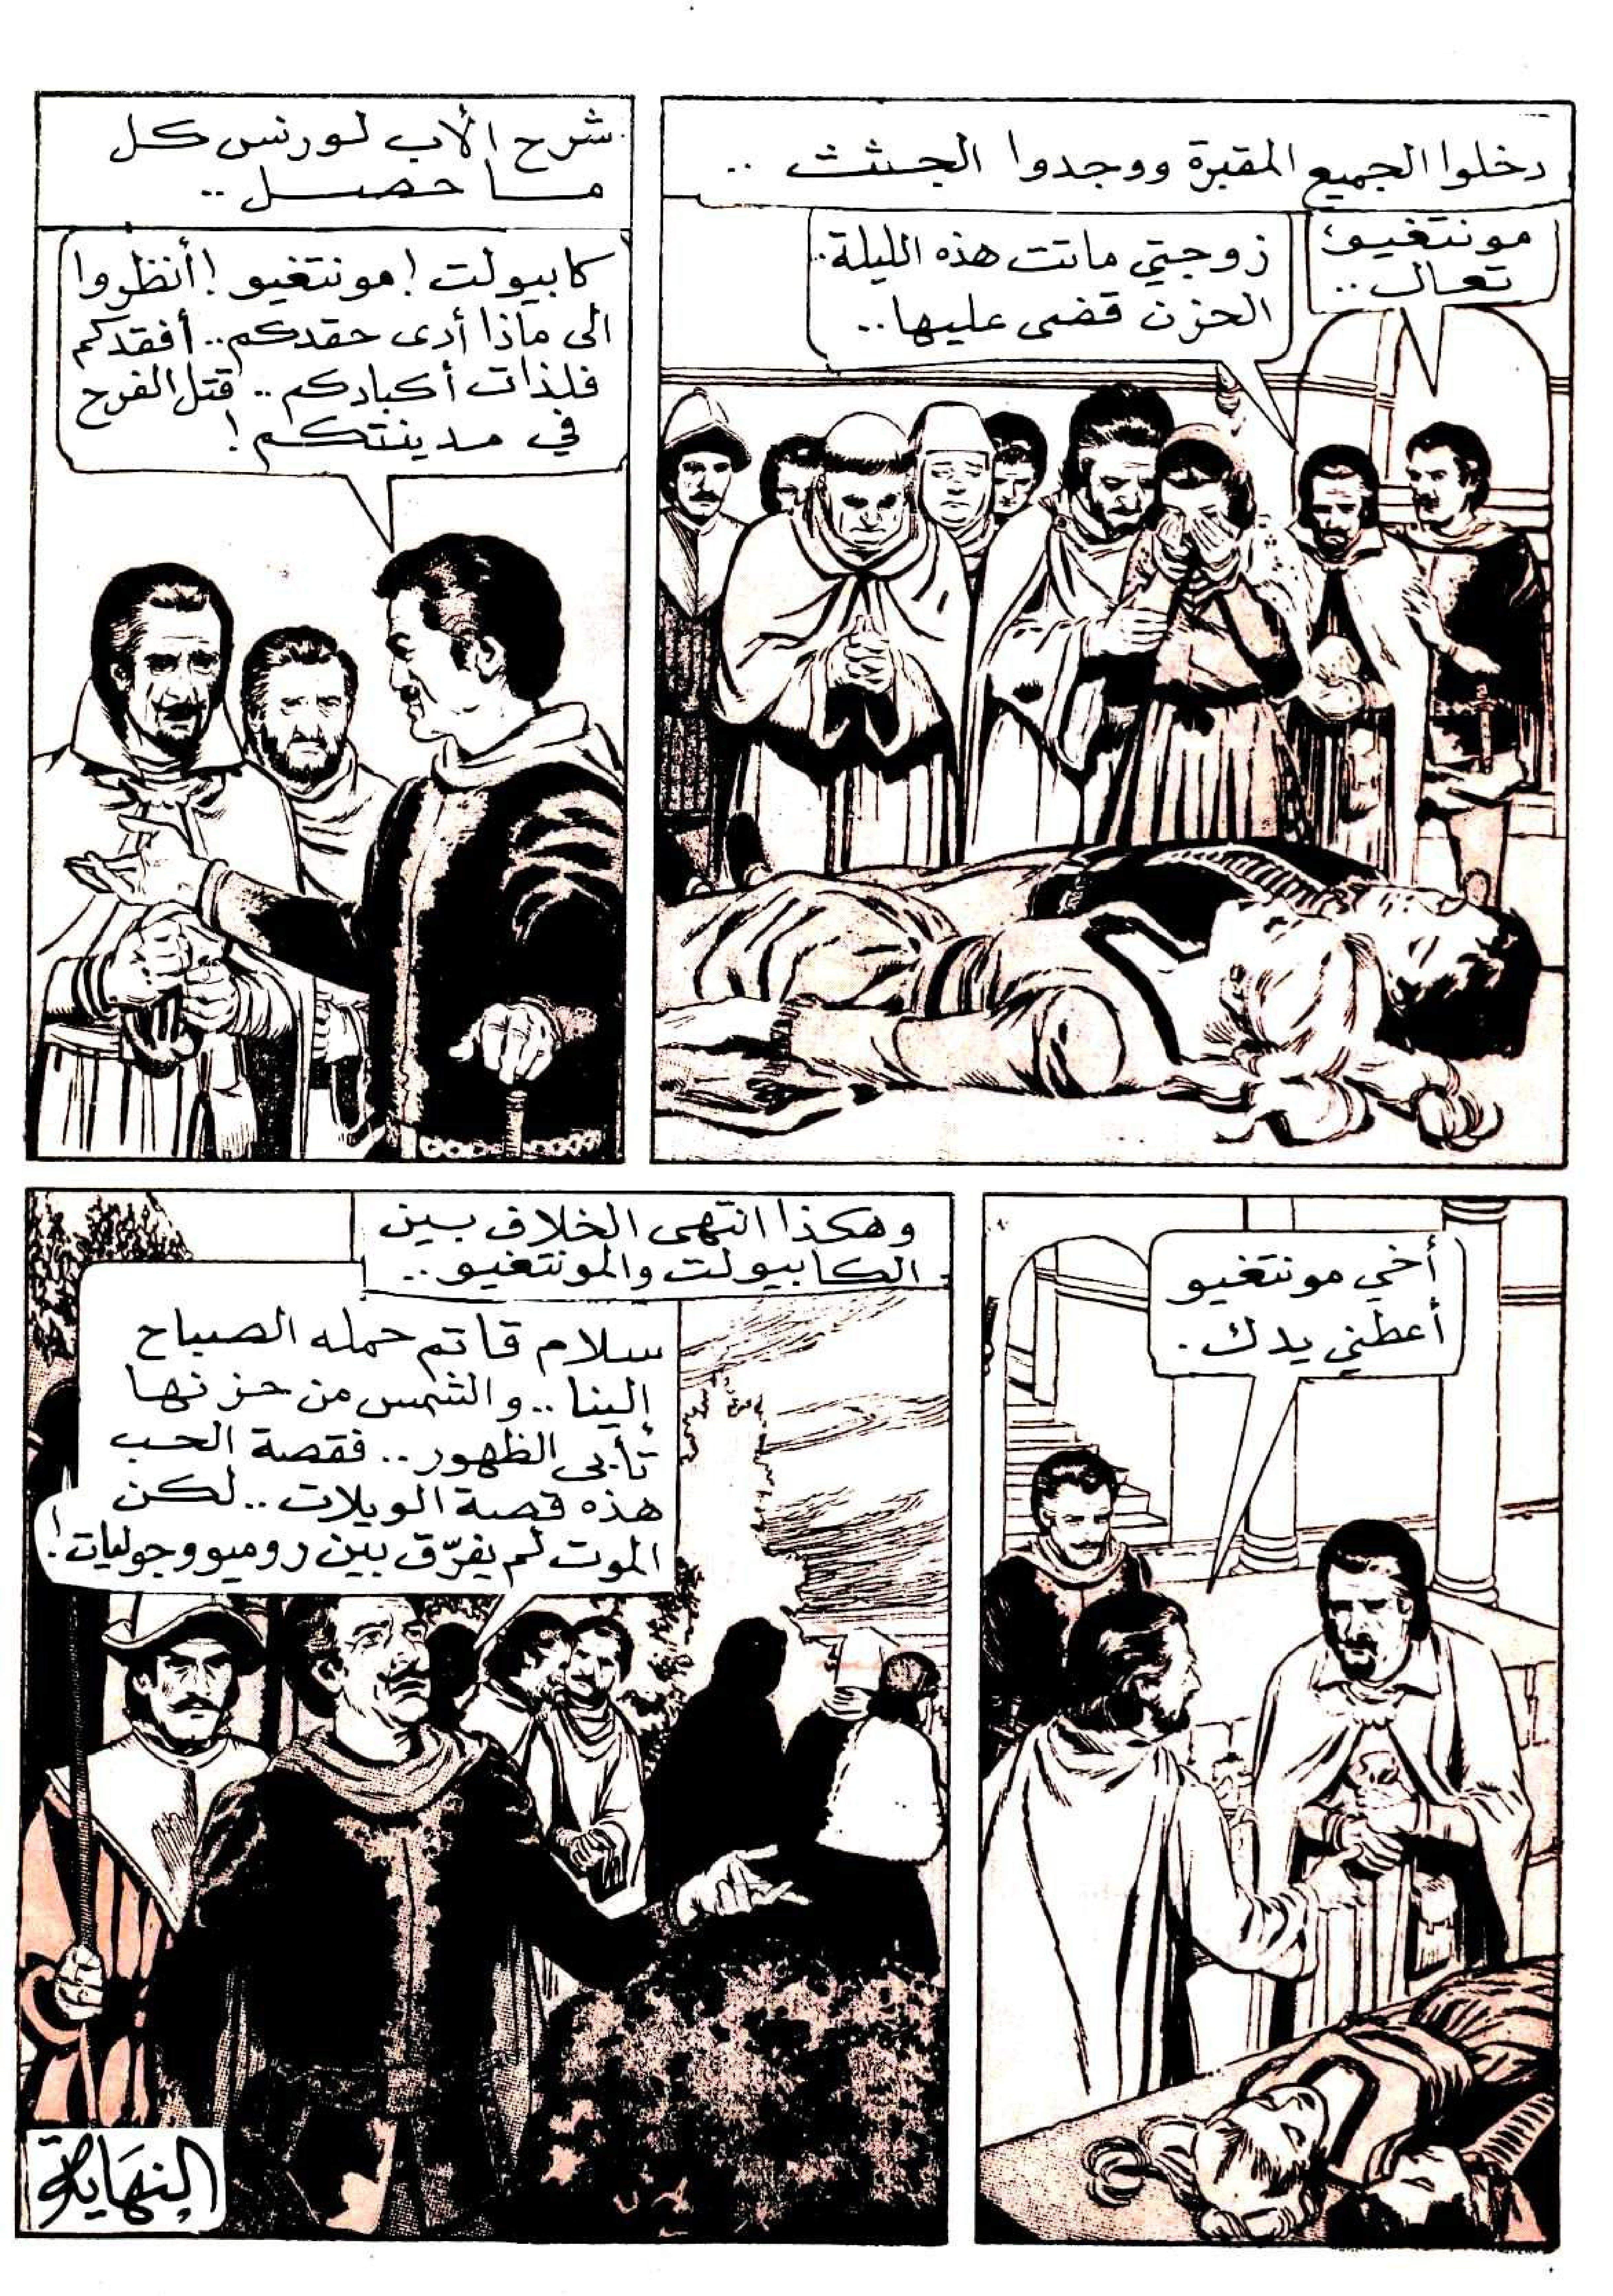 دخلوا الجميع المقبرة ووجدوا الجثث ..
مونتغيو،
تعال..
زوجتي ماتت هذه الليلة..
الحزن قضى عليها..
شرح الأب لورنس كل
ما حصل ..
كابيولت! مونتغيو! أنظروا
الى ماذا أدى حقدكم.. أفقدكم
فلذات أكبادكم .. قتل الفرح
في مدينتكم!
أخي مونتغيو
أعطني يدك.
وهكذا انتهى الخلاف بين
الكابيولت والمونتغيو..
سلام قاتم حمله الصباح
إلينا .. والشمس من حزنها
تأبى الظهور.. فقصة الحب
هذه قصة الويلات .. لكن
الموت لم يفرّق بين روميو وجولیات!
النهاية